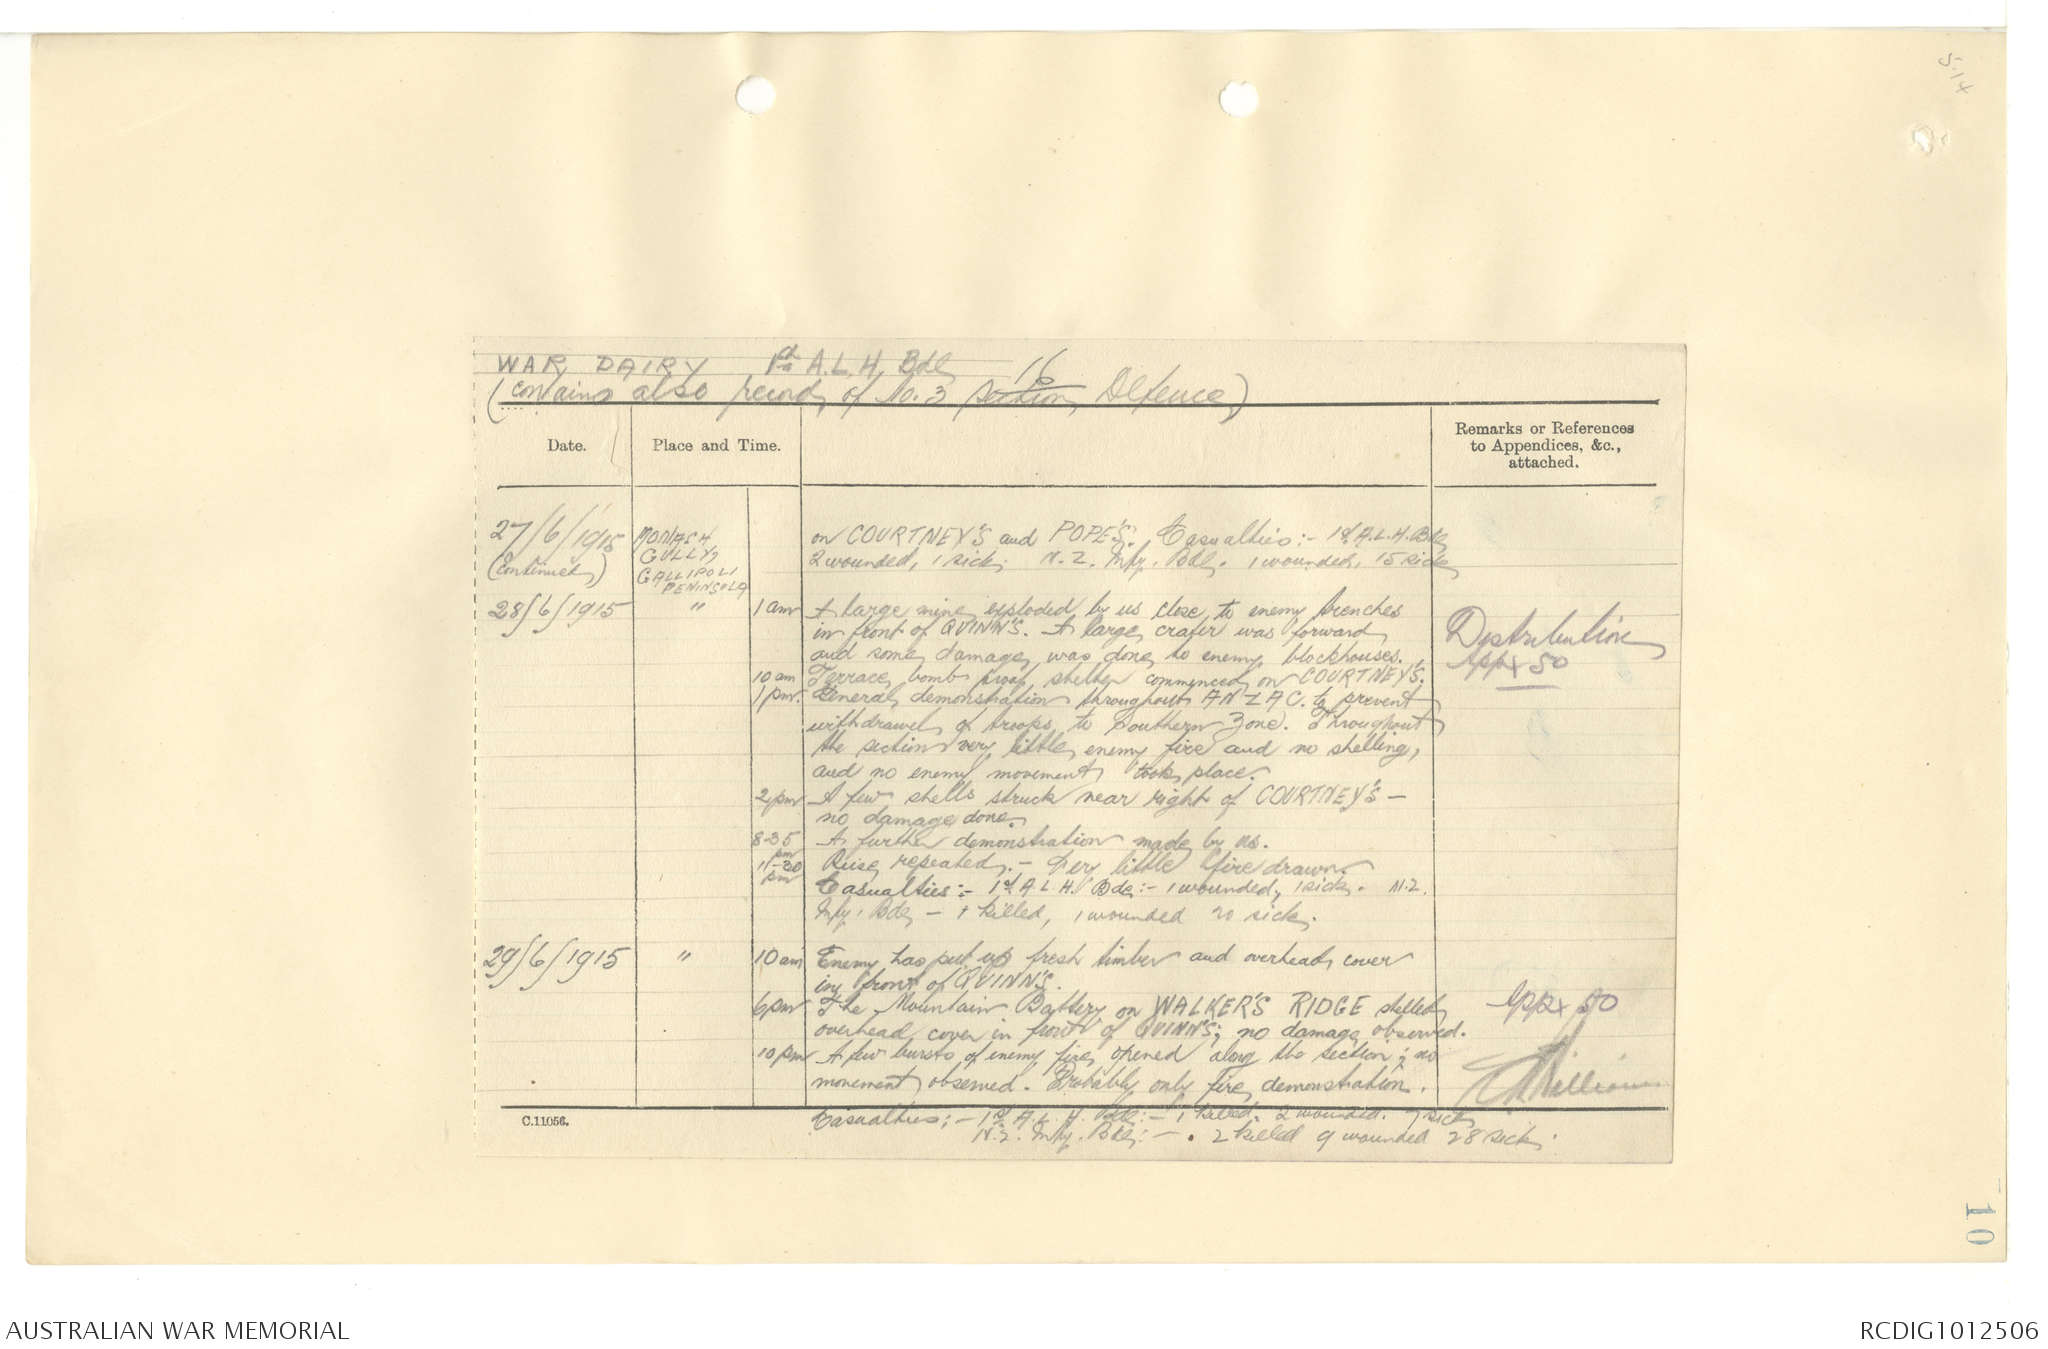 5.14
WAR DAIRY 1st A.L.H. Bde 16
(contains also record of No. 3 section Defence)
Date.
Place and Time.
Remarks or References
to Appendices, &c.,
attached.
27/6/1915
(continued)
MONASH
GULLY
GALLIPOLI
PENINSULA
on COURTNEY'S and POPE'S. Casualties:- 1st A.L.H. Bde
2 wounded, 1 sick. N.Z. Infy. Bde. 1 wounded, 15 sick
28/6/1915 " 1 am A large mine exploded by us close to enemy trenches
in front of QUINN'S. A large crater was forward
and some damage was done to enemy blockhouses.
Distribution
Appx 50
10 am Terrace bomb proof shelter commenced on COURTNEY'S.
1 pm. General demonstration throughout ANZAC. to prevent
withdrawel of troops to Southern Zone. Throughout
the section very little enemy fire and no shelling,
and no enemy movement took place.
2 pm A few shells struck near right of COURTNEY'S -
no damage done.
8-35 pm A further demonstration made by us.
11-30 pm Ruse repeated - very little fire drawn.
Casualties:- 1st A.L.H. Bde:- 1 wounded, 1 sick. N.Z.
Infy. Bde - killed, 1 wounded 20 sick.
29/6/1915 " 10 am Enemy has put up fresh timber and overhead cover
in front of QUINN'S.
6 pm The Mountain Battery on WALKER'S RIDGE shelled
overhead cover in front of QUINN'S; no damage observed.
Appx 50
10 pm A few bursts of enemy fire opened along the section; no
movement observed. Probably only fire demonstration.
Casualties:- 1st A.L.H. Bde:- 1 killed. 2 wounded. 7 sick
N.Z. Infy. Bde:- . 2 killed 9 wounded 28 sick.
C.11056.
10
AUSTRALIAN WAR MEMORIAL
RCDIG1012506